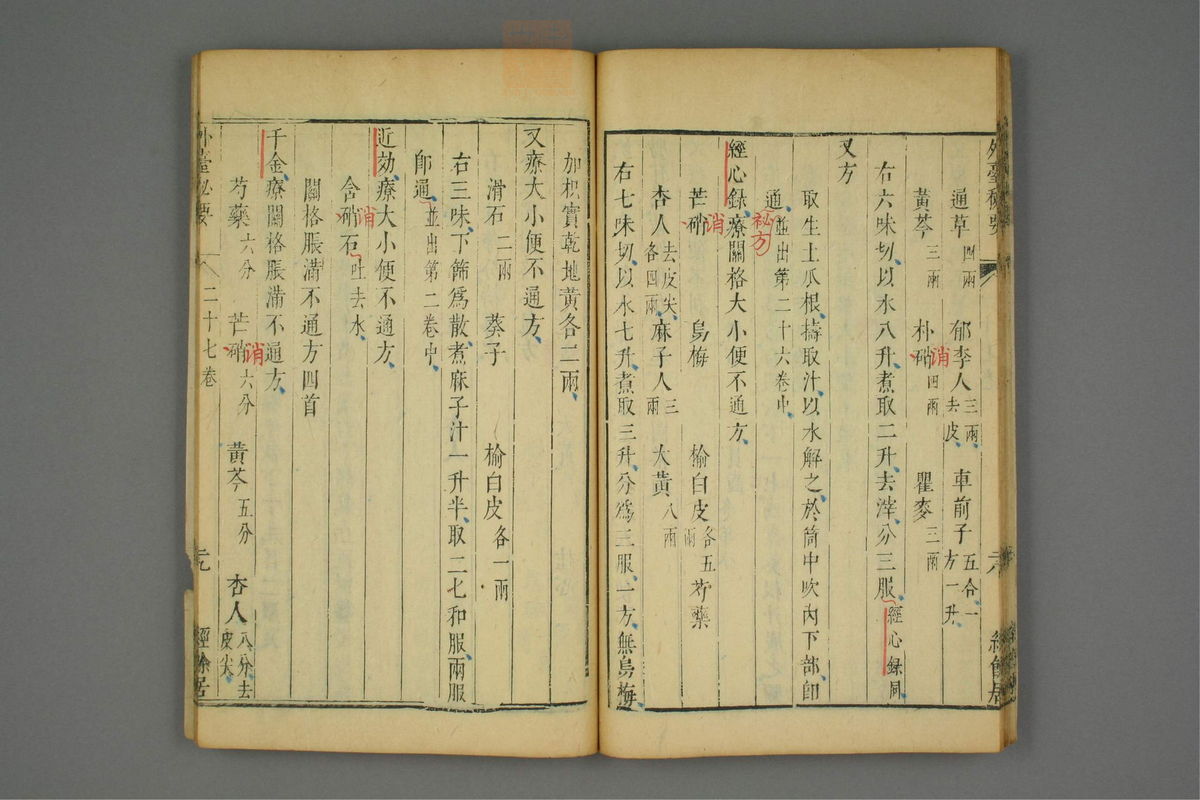 通草四兩　郁李人三兩去皮　車前子五合一方一升
黃芩三兩　朴硝消四兩　瞿麥三兩
右六味切以水八升煮取二升去滓分三服經心録同
又方
取生土瓜根擣取汁以水解之於筒中吹內下部卽
通並出第二十六卷中
秘方
經心録療關格大小便不通方
芒硝消　烏梅　榆白皮各五兩　芍藥
杏人去皮尖各四兩　麻子人三兩　大黃八兩
右七味切以水七升煮取三升分爲三服一方無烏梅
加枳實乾地黃各二兩
又療大小便不通方
滑石二兩　葵子　榆白皮各一兩
右三味下篩爲散煮麻子汁一升半取二七和服兩服
卽通並出第二卷中
近効療大小便不通方
含硝消石吐去水
關格脹滿不通方四首
千金療關格脹滿不通方
芍藥六分　芒硝消六分　黃芩五分　杏人八分去皮尖
外臺秘要　二十七卷　元　經餘居